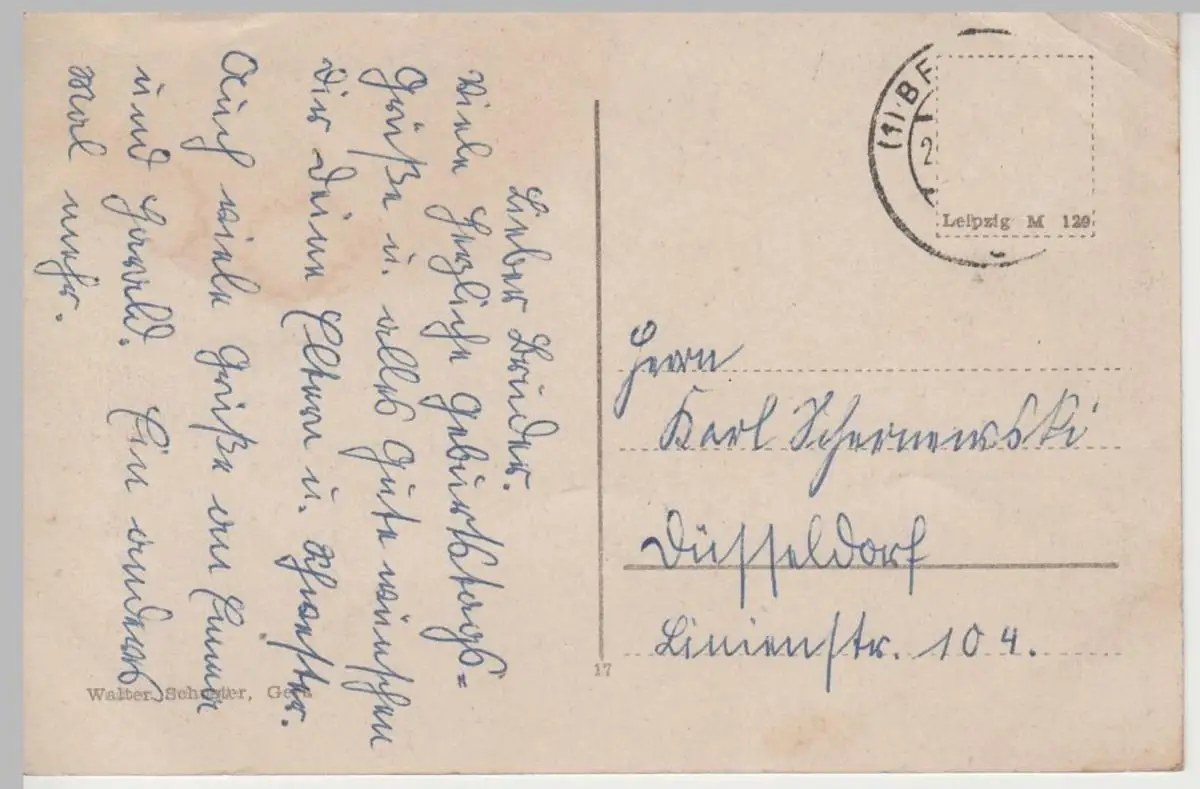 Lieber Bruder.
Viele herzliche Geburtstags=
Grüße u. alles Gute wünschen
Dir Deine Eltern u. Schwester.
Auch viele Grüße an Emma
und Harald. Ein anders
Mal mehr.
Walter Schuster, Gera
17
(1) BE
2
Leipzig M 129
Herrn
Karl Schernewski
Düsseldorf
Linienstr. 104.